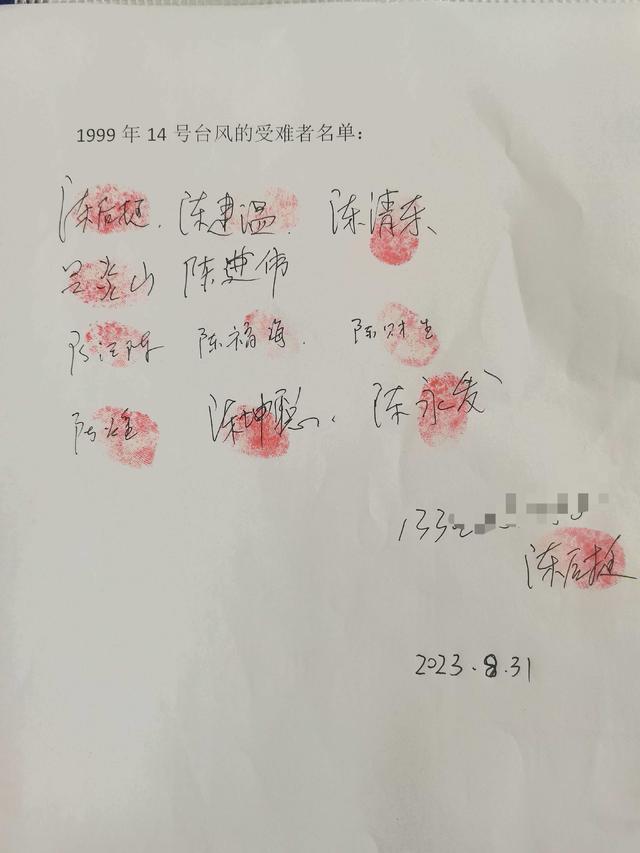 1999 年 14 号台风的受难者名单:
陈后挺. 陈建温. 陈清东、
兰光山 陈典伟
陈福海. 陈财生
陈雄 陈坤聪、陈永发
133
陈后挺
2023.8.31